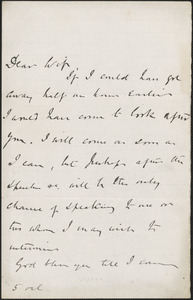 Dear Wife
If I could have got
away half an hour earlier
I would have come to look after
you. I will come as soon as
I can, but perhaps after the
speech will be the only
chance of speaking to one or
two whom I may wish to
God bless you till I come
5 oct